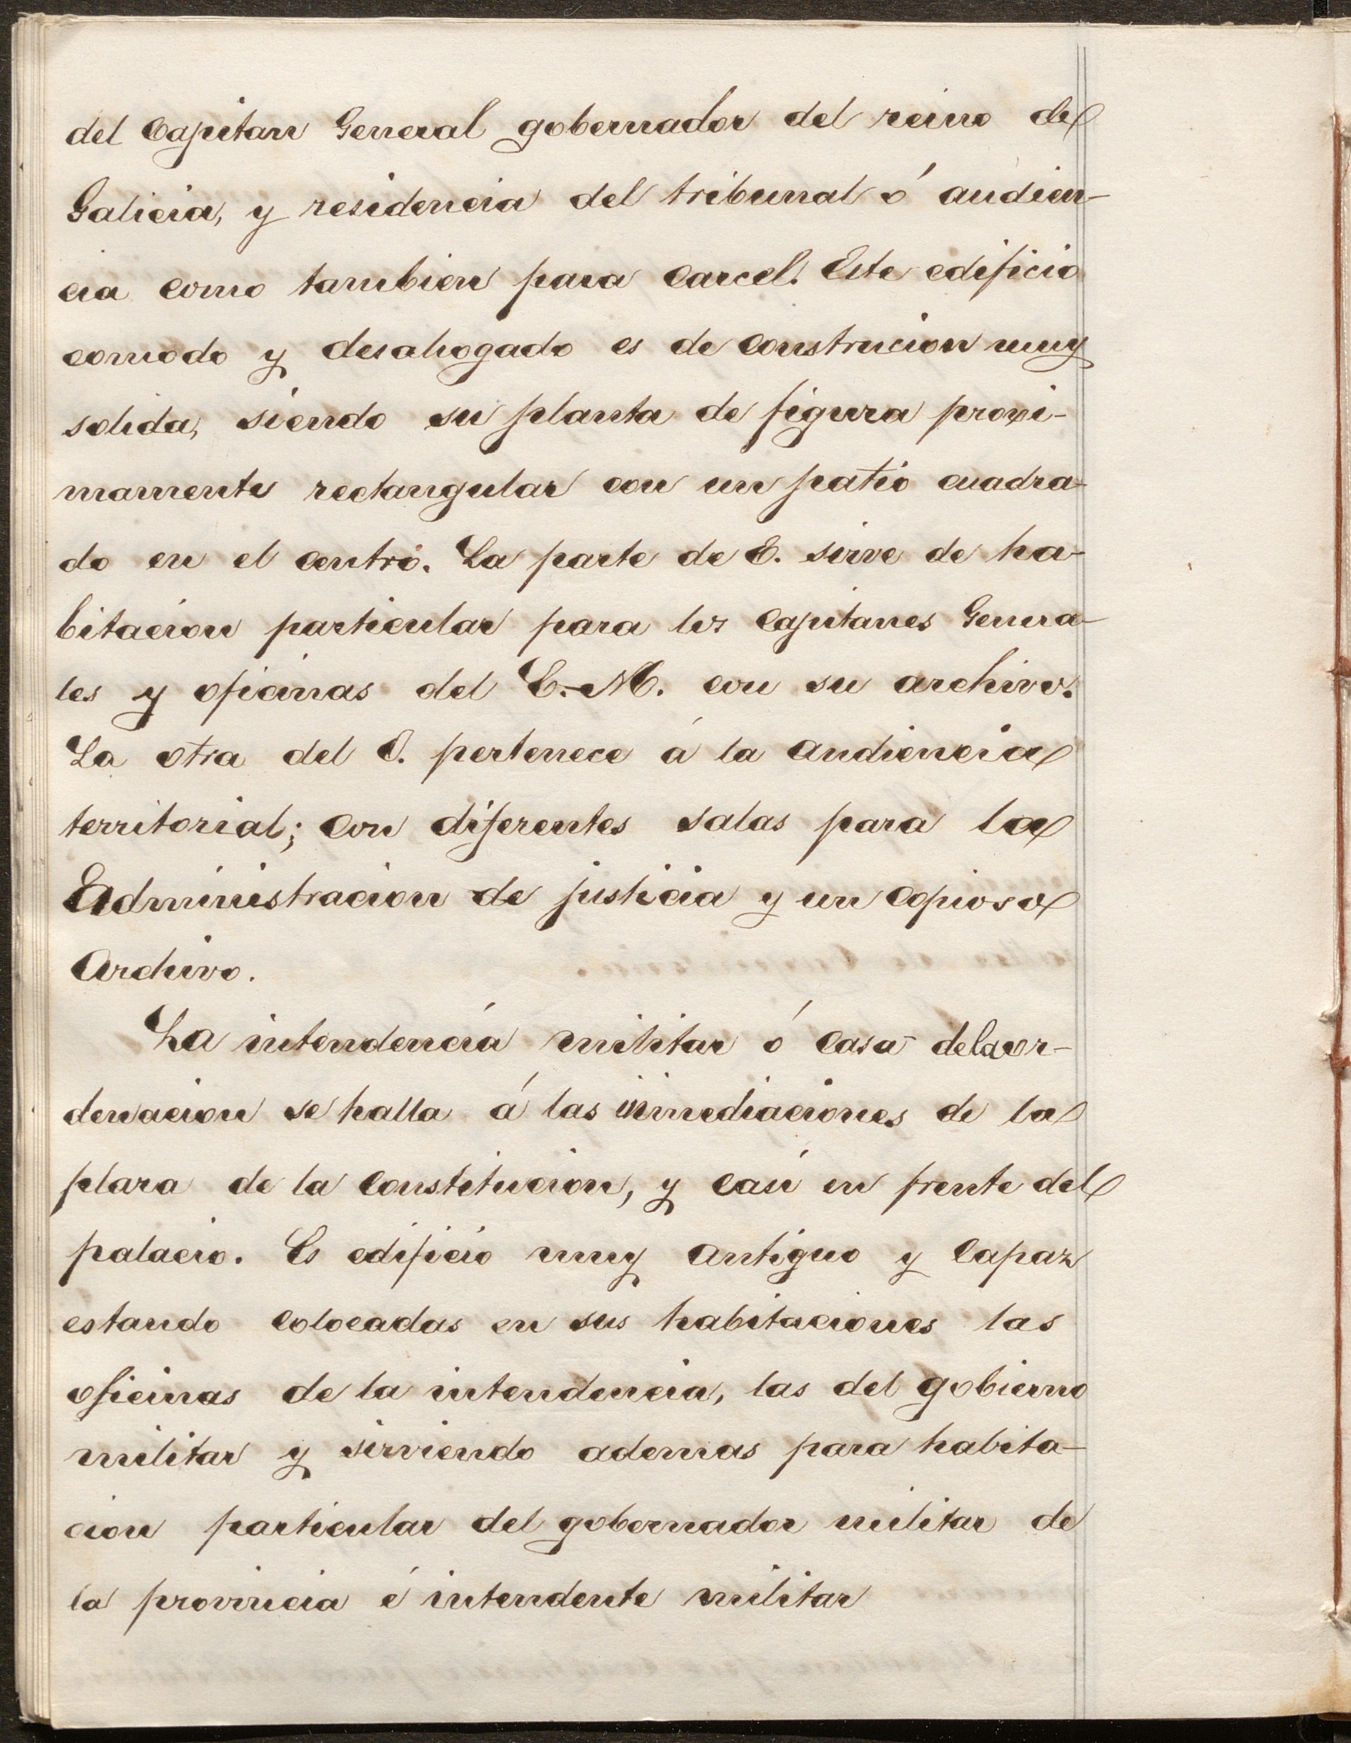 del Capitan General gobernador del reino de
Galicia, y residencia del tribunal ó audien-
cia como tambien para carcel. Este edificio
comodo y desahogado es de construcion muy
solida, siendo su planta de figura proxi-
mamente rectangular con un patio cuadra-
do en el centro. La parte de E. sirve de ha-
bitacion particular para los Capitanes Genera-
les y oficinas del E.-M. con su archivo.
La otra del O. pertenece á la audiencia
territorial; con diferentes salas para la
Administracion de justicia y un copioso
Archivo.
La intendencia militar ó casa de la or-
denacion se halla á las inmediaciones de la
plaza de la Constitucion, y casi en frente del
palacio. Es edificio muy antiguo y capaz
estando colocadas en sus habitaciones las
oficinas de la intendencia, las del gobierno
militar y sirviendo ademas para habita-
cion particular del gobernador militar de
la provincia é intendente militar